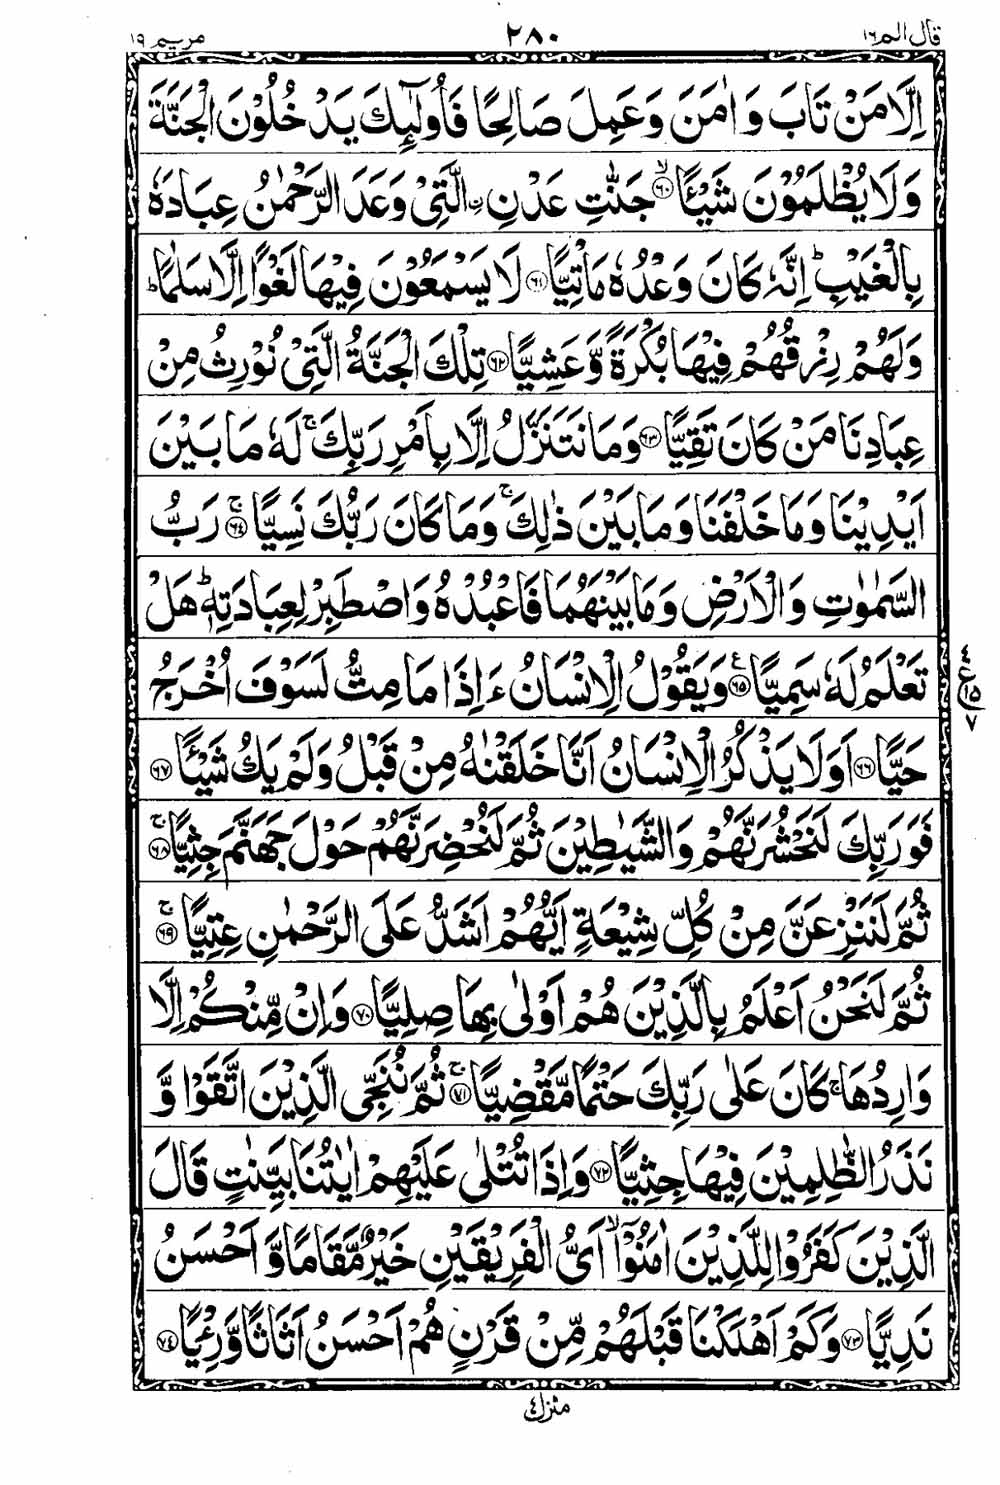 قال الم ١٦ ٢٨٠ مريم ١٩
اِلَّا مَنْ تَابَ وَاٰمَنَ وَعَمِلَ صَالِحًا فَاُولٰٓئِكَ يَدْخُلُوْنَ الْجَنَّةَ
وَلَا يُظْلَمُوْنَ شَيْـًٔا ۙ‏﴿۶۰﴾ جَنّٰتِ عَدْنِ ۨالَّتِىْ وَعَدَ الرَّحْمٰنُ عِبَادَهٗ
بِالْغَيْبِ ؕ اِنَّهٗ كَانَ وَعْدُهٗ مَاْتِيًّا ﴿۶۱﴾ لَا يَسْمَعُوْنَ فِيْهَا لَغْوًا اِلَّا سَلٰمًا ؕ
وَلَهُمْ رِزْقُهُمْ فِيْهَا بُكْرَةً وَّعَشِيًّا ﴿۶۲﴾ تِلْكَ الْجَنَّةُ الَّتِىْ نُوْرِثُ مِنْ
عِبَادِنَا مَنْ كَانَ تَقِيًّا ﴿۶۳﴾ وَمَا نَتَنَزَّلُ اِلَّا بِاَمْرِ رَبِّكَ ۚ لَهٗ مَا بَيْنَ
اَيْدِيْنَا وَمَا خَلْفَنَا وَمَا بَيْنَ ذٰلِكَ ۚ وَمَا كَانَ رَبُّكَ نَسِيًّا ۚ﴿۶۴﴾ رَبُّ
السَّمٰوٰتِ وَالْاَرْضِ وَمَا بَيْنَهُمَا فَاعْبُدْهُ وَاصْطَبِرْ لِعِبَادَتِهٖ ؕ هَلْ
تَعْلَمُ لَهٗ سَمِيًّا ﴿۶۵﴾ ع وَيَقُوْلُ الْاِنْسَانُ ءَاِذَا مَا مِتُّ لَسَوْفَ اُخْرَجُ
حَيًّا ﴿۶۶﴾ اَوَلَا يَذْكُرُ الْاِنْسَانُ اَنَّا خَلَقْنٰهُ مِنْ قَبْلُ وَلَمْ يَكُ شَيْـًٔا ﴿۶۷﴾
فَوَرَبِّكَ لَنَحْشُرَنَّهُمْ وَالشَّيٰطِيْنَ ثُمَّ لَنُحْضِرَنَّهُمْ حَوْلَ جَهَنَّمَ جِثِيًّا ۚ﴿۶۸﴾
ثُمَّ لَنَنْزِعَنَّ مِنْ كُلِّ شِيْعَةٍ اَيُّهُمْ اَشَدُّ عَلَى الرَّحْمٰنِ عِتِيًّا ۚ﴿۶۹﴾
ثُمَّ لَنَحْنُ اَعْلَمُ بِالَّذِيْنَ هُمْ اَوْلٰى بِهَا صِلِيًّا ﴿۷۰﴾ وَاِنْ مِّنْكُمْ اِلَّا
وَارِدُهَا ۚ كَانَ عَلٰى رَبِّكَ حَتْمًا مَّقْضِيًّا ۚ﴿۷۱﴾ ثُمَّ نُنَجِّى الَّذِيْنَ اتَّقَوْا وَّ
نَذَرُ الظّٰلِمِيْنَ فِيْهَا جِثِيًّا ﴿۷۲﴾ وَاِذَا تُتْلٰى عَلَيْهِمْ اٰيٰتُنَا بَيِّنٰتٍ قَالَ
الَّذِيْنَ كَفَرُوْا لِلَّذِيْنَ اٰمَنُوْٓا ۙ اَىُّ الْفَرِيْقَيْنِ خَيْرٌ مَّقَامًا وَّاَحْسَنُ
نَدِيًّا ﴿۷۳﴾ وَكَمْ اَهْلَكْنَا قَبْلَهُمْ مِّنْ قَرْنٍ هُمْ اَحْسَنُ اَثَاثًا وَّرِءْيًا ﴿۷۴﴾
منزل ٤